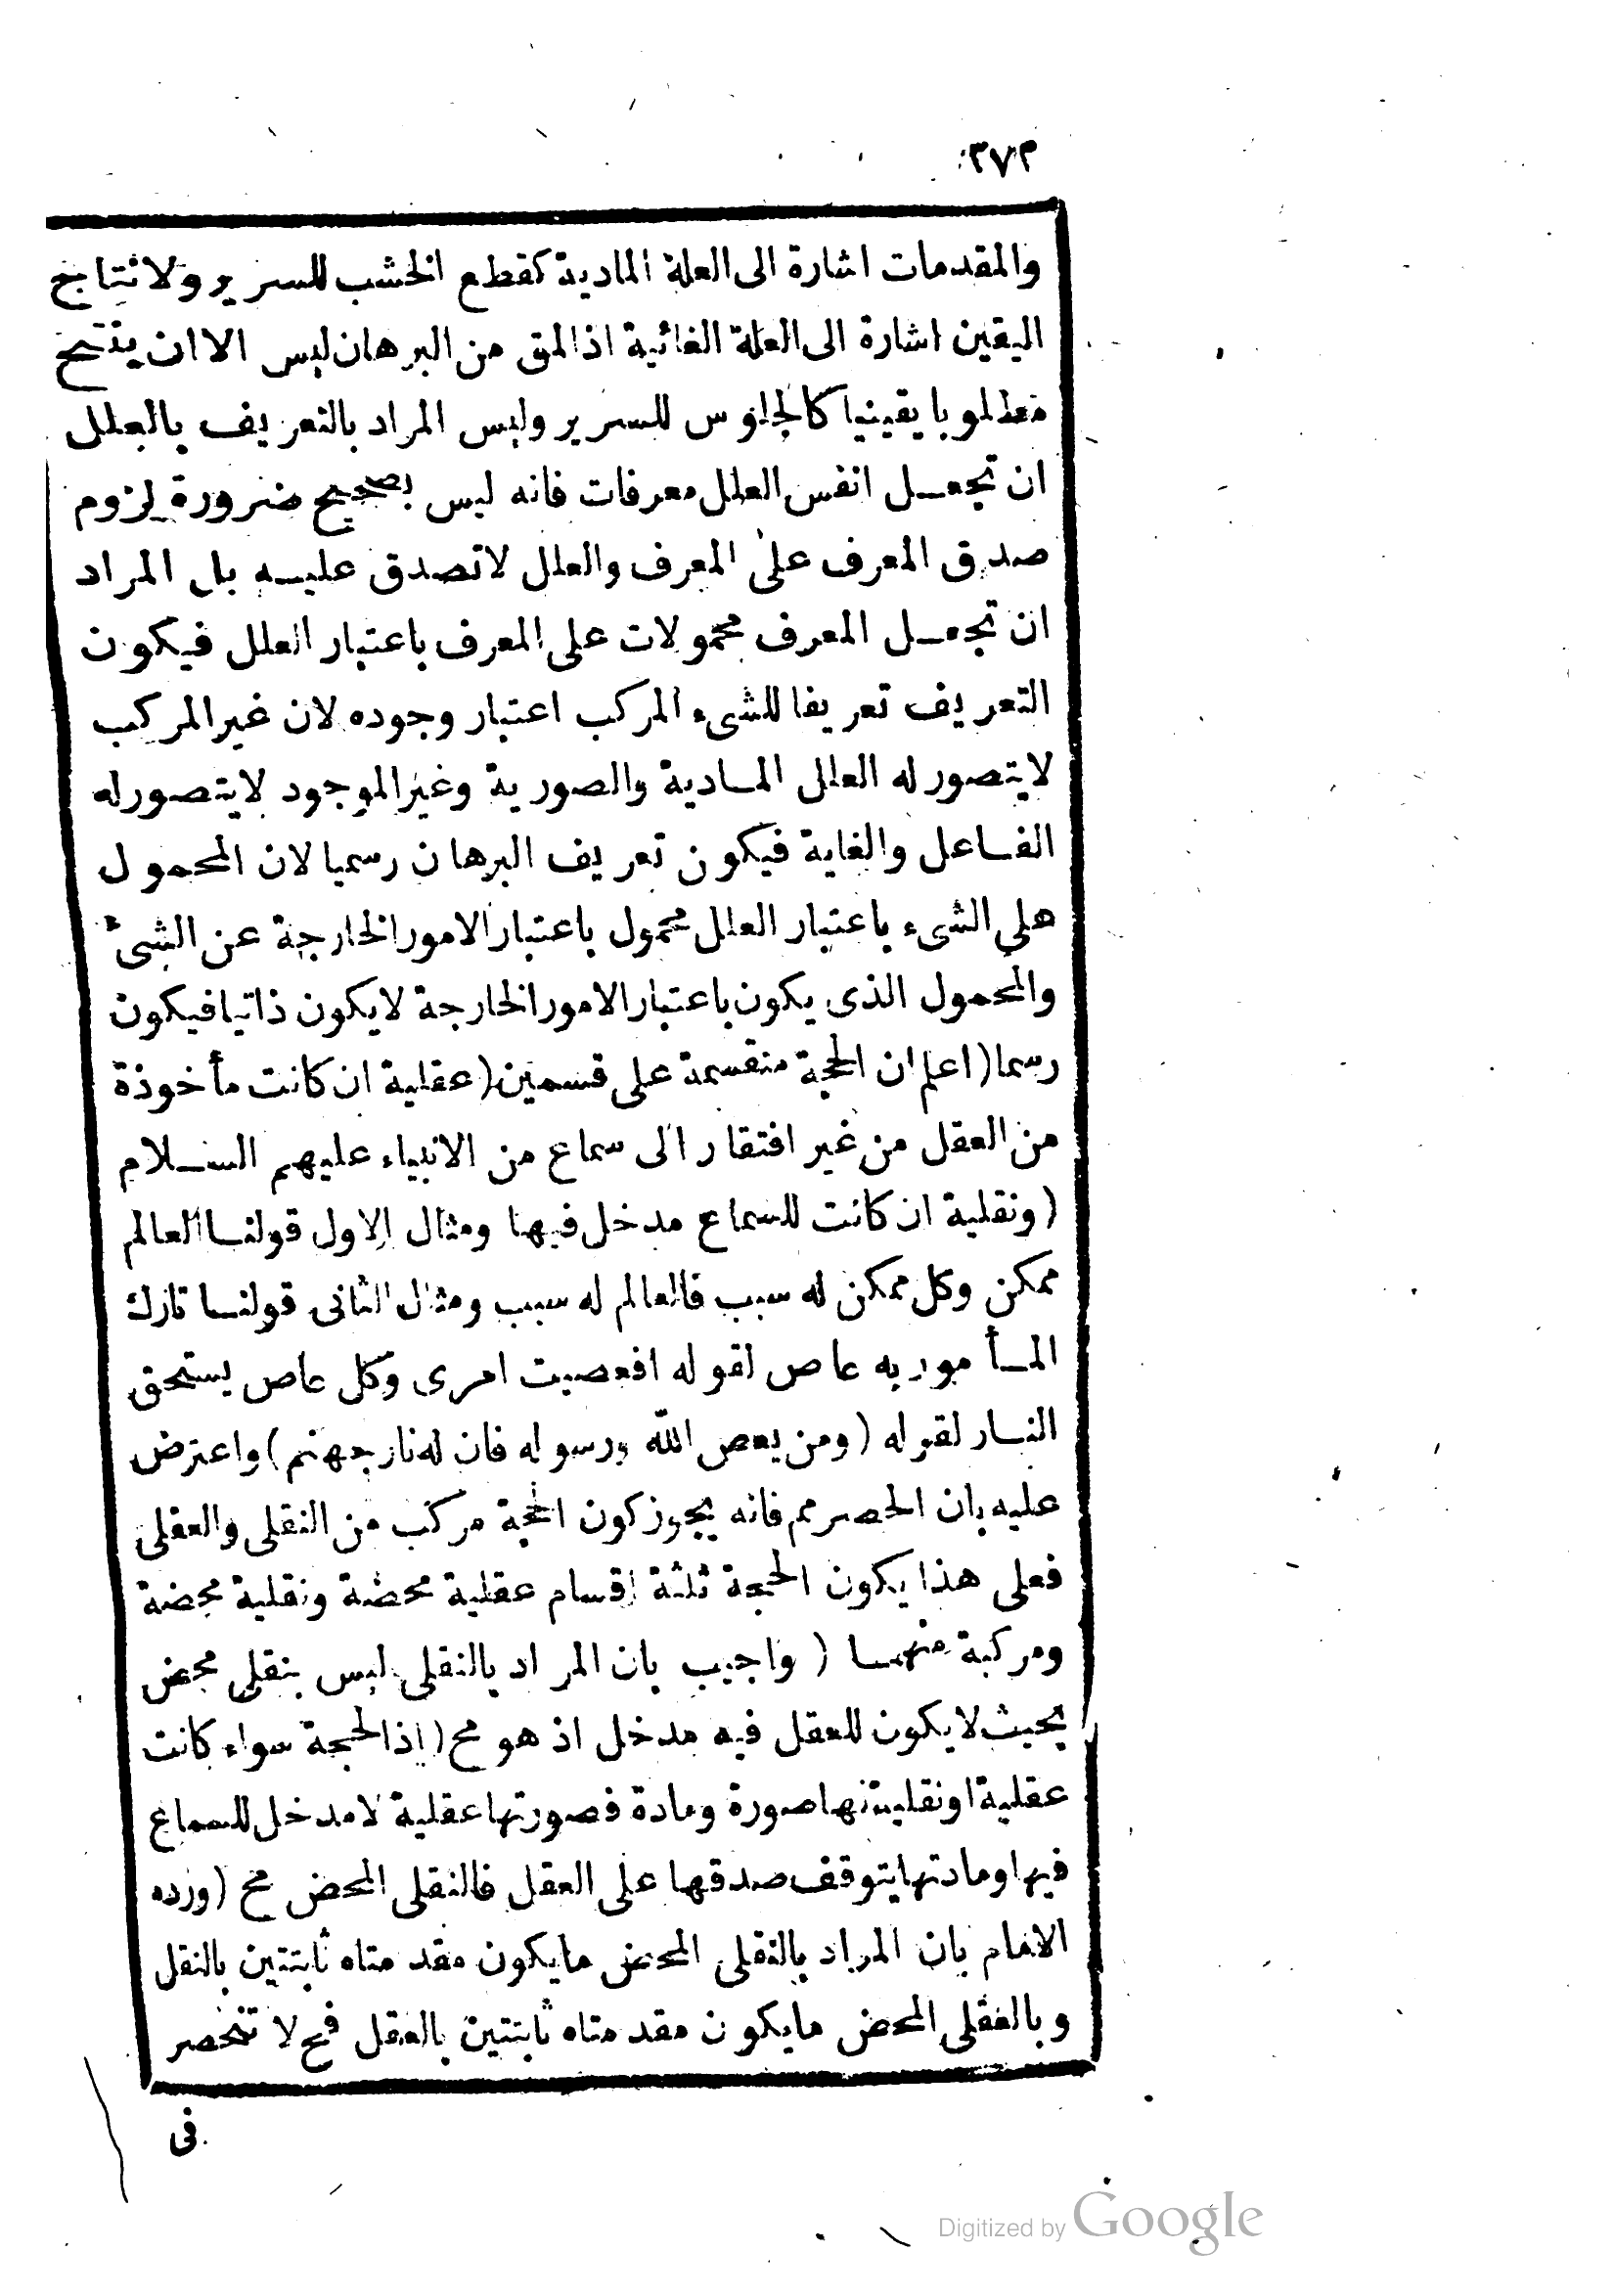 ٣٧٢
والمقدمات اشارة الى العلة المادية كقطع الخشب للسرير ولانتاج
اليقين اشارة الى العلة الغائية اذ المق من البرهان ليس الا ان ينتج
مطلوبا يقينيا كالجلوس للسرير وليس المراد بالتعريف بالعلل
ان تجعل انفس العلل معرفات فانه ليس بصحيح ضرورة لزوم
صدق المعرف على المعرف والعلل لا تصدق عليه بل المراد
ان تجعل المعرف محمولات على المعرف باعتبار العلل فيكون
التعريف تعريفا للشىء المركب اعتبار وجوده لان غير المركب
لا يتصور له العلل المادية والصورية وغير الموجود لا يتصور له
الفاعل والغاية فيكون تعريف البرهان رسميا لان المحمول
على الشىء باعتبار العلل محمول باعتبار الامور الخارجة عن الشىء
والمحمول الذى يكون باعتبار الامور الخارجة لا يكون ذاتيا فيكون
رسما (اعلم ان الحجة منقسمة على قسمين (عقلية ان كانت مأخوذة
من العقل من غير افتقار الى سماع من الانبياء عليهم السلام
(ونقلية ان كانت للسماع مدخل فيها ومثال الاول قولنا العالم
ممكن وكل ممكن له سبب فالعالم له سبب ومثال الثانى قولنا تارك
المأمور به عاص لقوله افعصيت امرى وكل عاص يستحق
النار لقوله (ومن يعص الله ورسوله فان له نار جهنم) واعترض
عليه بان الحصر مم فانه يجوز كون الحجة مركب من النقلى والعقلى
فعلى هذا يكون الحجة ثلثة اقسام عقلية محضة ونقلية محضة
ومركبة منهما (واجيب بان المراد بالنقلى ليس بنقلى محض
بحيث لا يكون للعقل فيه مدخل اذ هو مح (اذ الحجة سواء كانت
عقلية او نقلية لها صورة ومادة فصورتها عقلية لا مدخل للسماع
فيها ومادتها يتوقف صدقها على العقل فالنقلى المحض مح (ورده
الامام بان المراد بالنقلى المحض ما يكون مقدمتاه ثابتتين بالنقل
وبالعقلى المحض ما يكون مقدمتاه ثابتتين بالعقل فح لا تنحصر
فى
Digitized by Google